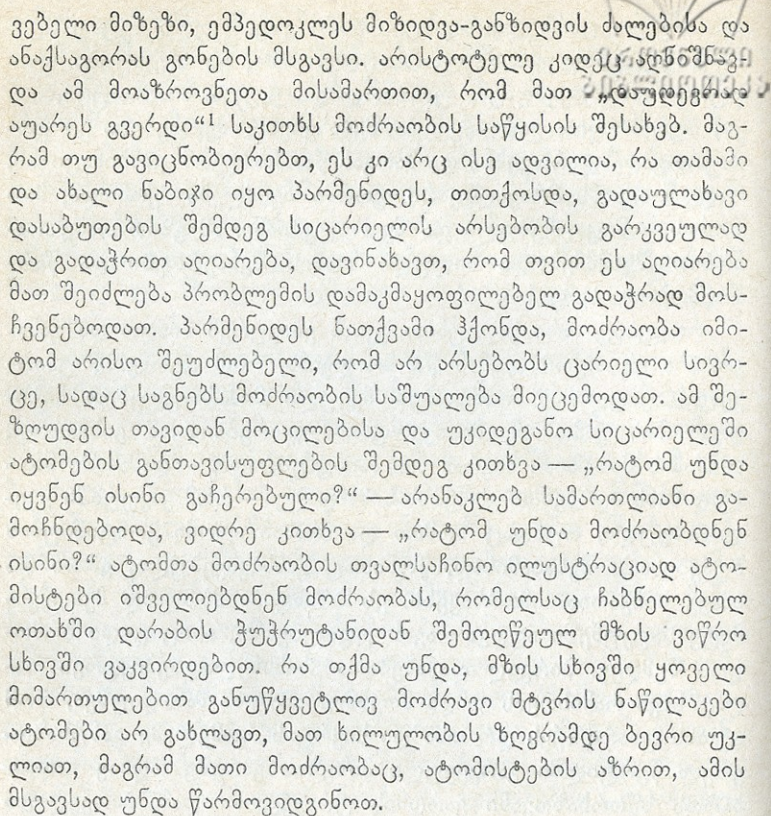 ვებელი მიზეზი, ემპედოკლეს მიზიდვა-განზიდვის ძალებისა და
ანაქსაგორას გონების მსგავსი. არისტოტელე კიდეც აღნიშნავ-
და ამ მოაზროვნეთა მისამართით, რომ მათ „დაუდევრად
აუარეს გვერდი“¹ საკითხს მოძრაობის საწყისის შესახებ. მაგ-
რამ თუ გავიცნობიერებთ, ეს კი არც ისე ადვილია, რა თამამი
და ახალი ნაბიჯი იყო პარმენიდეს, თითქოსდა, გადაულახავი
დასაბუთების შემდეგ სიცარიელის არსებობის გარკვეულად
და გადაჭრით აღიარება, დავინახავთ, რომ თვით ეს აღიარება
მათ შეიძლება პრობლემის დამაკმაყოფილებელ გადაჭრად მოს-
ჩვენებოდათ. პარმენიდეს ნათქვამი ჰქონდა, მოძრაობა იმი-
ტომ არისო შეუძლებელი, რომ არ არსებობს ცარიელი სივრ-
ცე, სადაც საგნებს მოძრაობის საშუალება მიეცემოდათ. ამ შე-
ზღუდვის თავიდან მოცილებისა და უკიდეგანო სიცარიელეში
ატომების განთავისუფლების შემდეგ კითხვა — „რატომ უნდა
იყვნენ ისინი გაჩერებული?“ — არანაკლებ სამართლიანი გა-
მოჩნდებოდა, ვიდრე კითხვა — „რატომ უნდა მოძრაობდნენ
ისინი?“ ატომთა მოძრაობის თვალსაჩინო ილუსტრაციად ატო-
მისტები იშველიებდნენ მოძრაობას, რომელსაც ჩაბნელებულ
ოთახში დარაბის ჭუჭრუტანიდან შემოღწეულ მზის ვიწრო
სხივში ვაკვირდებით. რა თქმა უნდა, მზის სხივში ყოველი
მიმართულებით განუწყვეტლივ მოძრავი მტვრის ნაწილაკები
ატომები არ გახლავთ, მათ ხილულობის ზღვრამდე ბევრი უკ-
ლიათ, მაგრამ მათი მოძრაობაც, ატომისტების აზრით, ამის
მსგავსად უნდა წარმოვიდგინოთ.